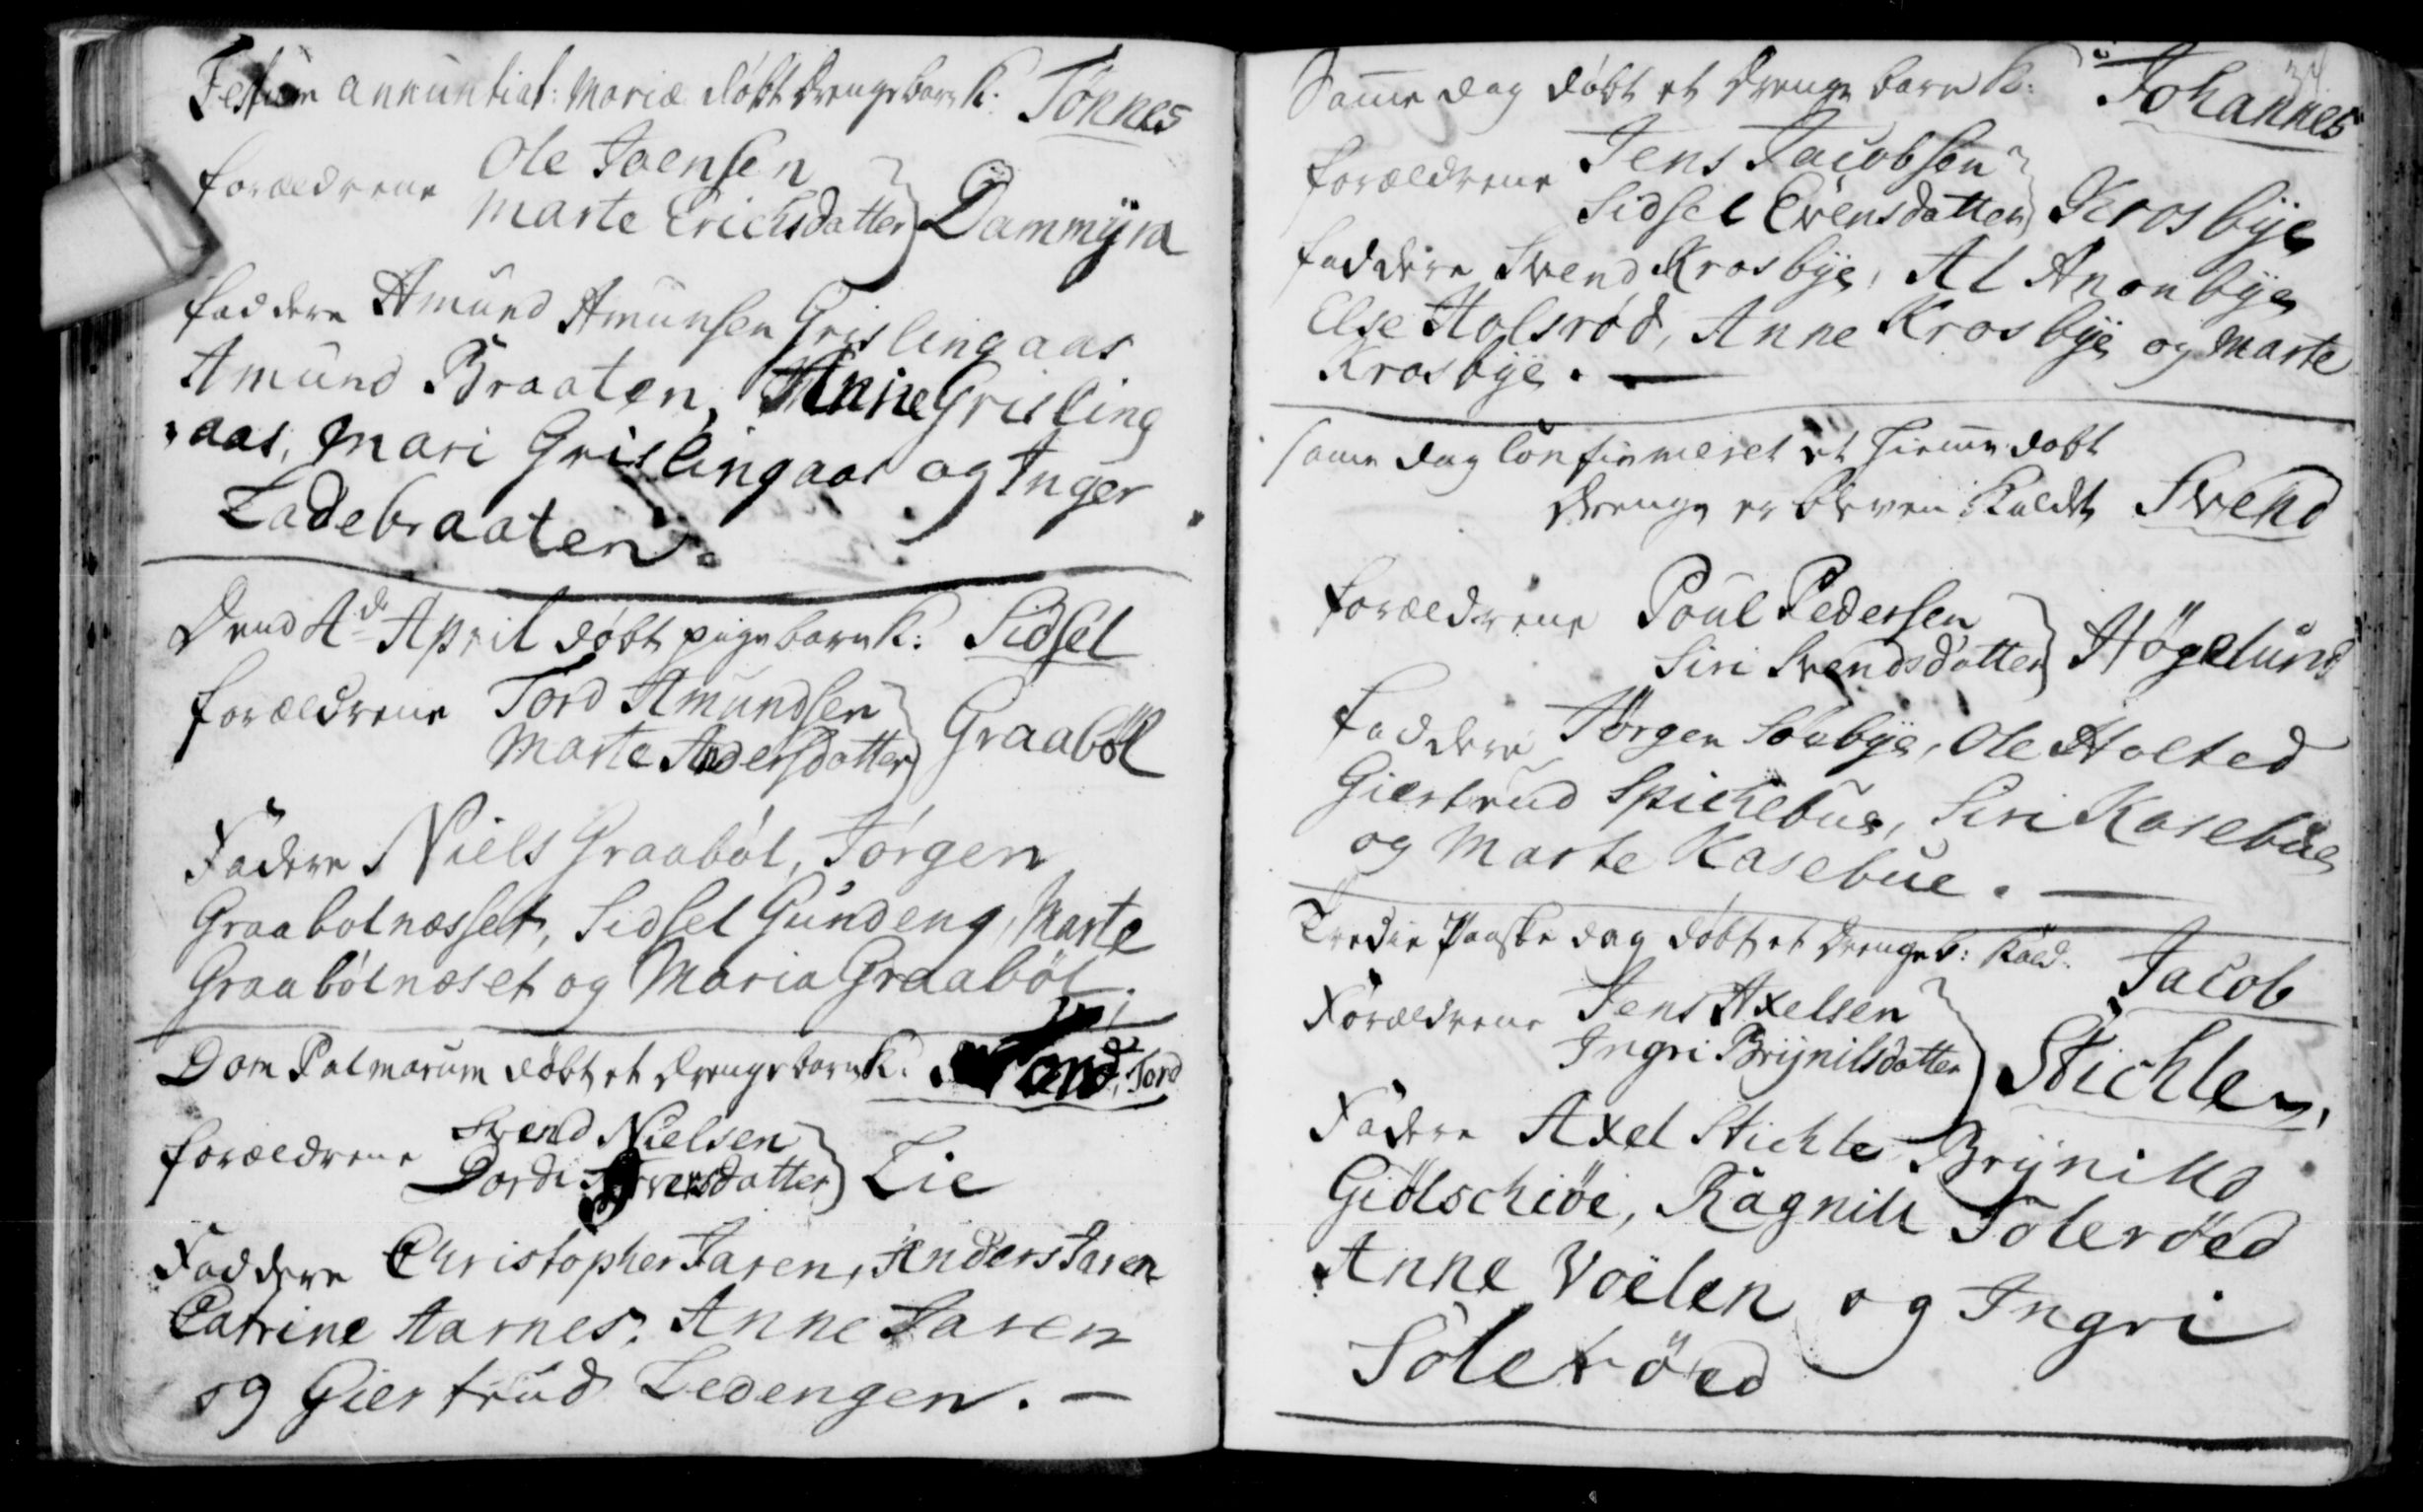 Festum annuntiat: Mariæ døbt drengebarn k: Tönnes
forældrene Ole Joensen
Marte Erichsdatter Dammÿra
faddere Amund Amunsen Grislingaas
Amund Braaten, Anne Grisling
aas, Mari Grislingaas og Inger
Ladebraaten.
Dend 4de April døbt pigebarn k: Sidsel
forældrene Tord Amundsen
Marte Andersdatter Graaböl
Fadere Niels Graaböl, Jörgen
Graabolnæsset, Sidsel Gundeng, Marte
Graabölnæset og Maria Graaböl.
Dom Palmarum døbt et drengebarn k: Tord
forældrene Svend Nielsen
Dordi Lie
Faddere Christopher Jaren, Anders Jaren
Catrine Aarnes, Anne Jaren
og Giertrud Ledengen. —
34
Samme dag døbt et drenge barn k: Johannes
forældrene Jens Jacobsen
Sidsel Evensdatter Krosbÿe
faddere Svend Krosbÿe, Al Anonbÿe
Else Holsröd, Anne Krosbÿe og Marte
Krosbÿe. —
same dag Confirmeret et hiemme døbt
drenge er bleven kaldt Svend
forældrene Poul Pedersen
Siri Svendsdatter Högelund
faddere Jörgen Söebÿe, Ole Holsted
Giertrud Spichebue, Siri Kasebue
og Marte Kasebue. —
Tredie Paaske dag døbt et drengeb: kald. Jacob
Forældrene Jens Axelsen
Ingri Brÿnilsdatter Stichle,
Fadere Axel Stichle Brÿnild
Giölschiöe, Ragnill Soleröed
Anne Voelen og Ingri
Soleröed